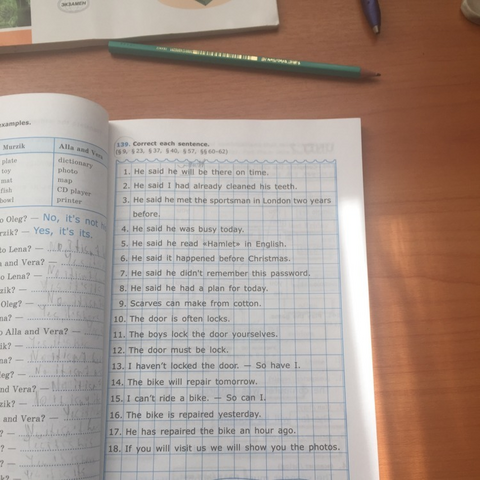 ЭКЗАМЕН
examples.
Murzik
Alla and Vera
plate
dictionary
toy
photo
mat
map
fish
CD player
bowl
printer
Oleg? — No, it's not
rzik? — Yes, it's its.
to Lena?
a and Vera?
to Lena?
zik?
Oleg?
na?
Alla and Vera?
ik?
na?
leg?
nd Vera?
zik?
and Vera?
139. Correct each sentence.
(§ 9, § 23, § 37, § 40, § 57, §§ 60–62)
1. He said he will be there on time.
2. He said I had already cleaned his teeth.
3. He said he met the sportsman in London two years
before.
4. He said he was busy today.
5. He said he read «Hamlet» in English.
6. He said it happened before Christmas.
7. He said he didn't remember this password.
8. He said he had a plan for today.
9. Scarves can make from cotton.
10. The door is often locks.
11. The boys lock the door yourselves.
12. The door must be lock.
13. I haven't locked the door. — So have I.
14. The bike will repair tomorrow.
15. I can't ride a bike. — So can I.
16. The bike is repaired yesterday.
17. He has repaired the bike an hour ago.
18. If you will visit us we will show you the photos.